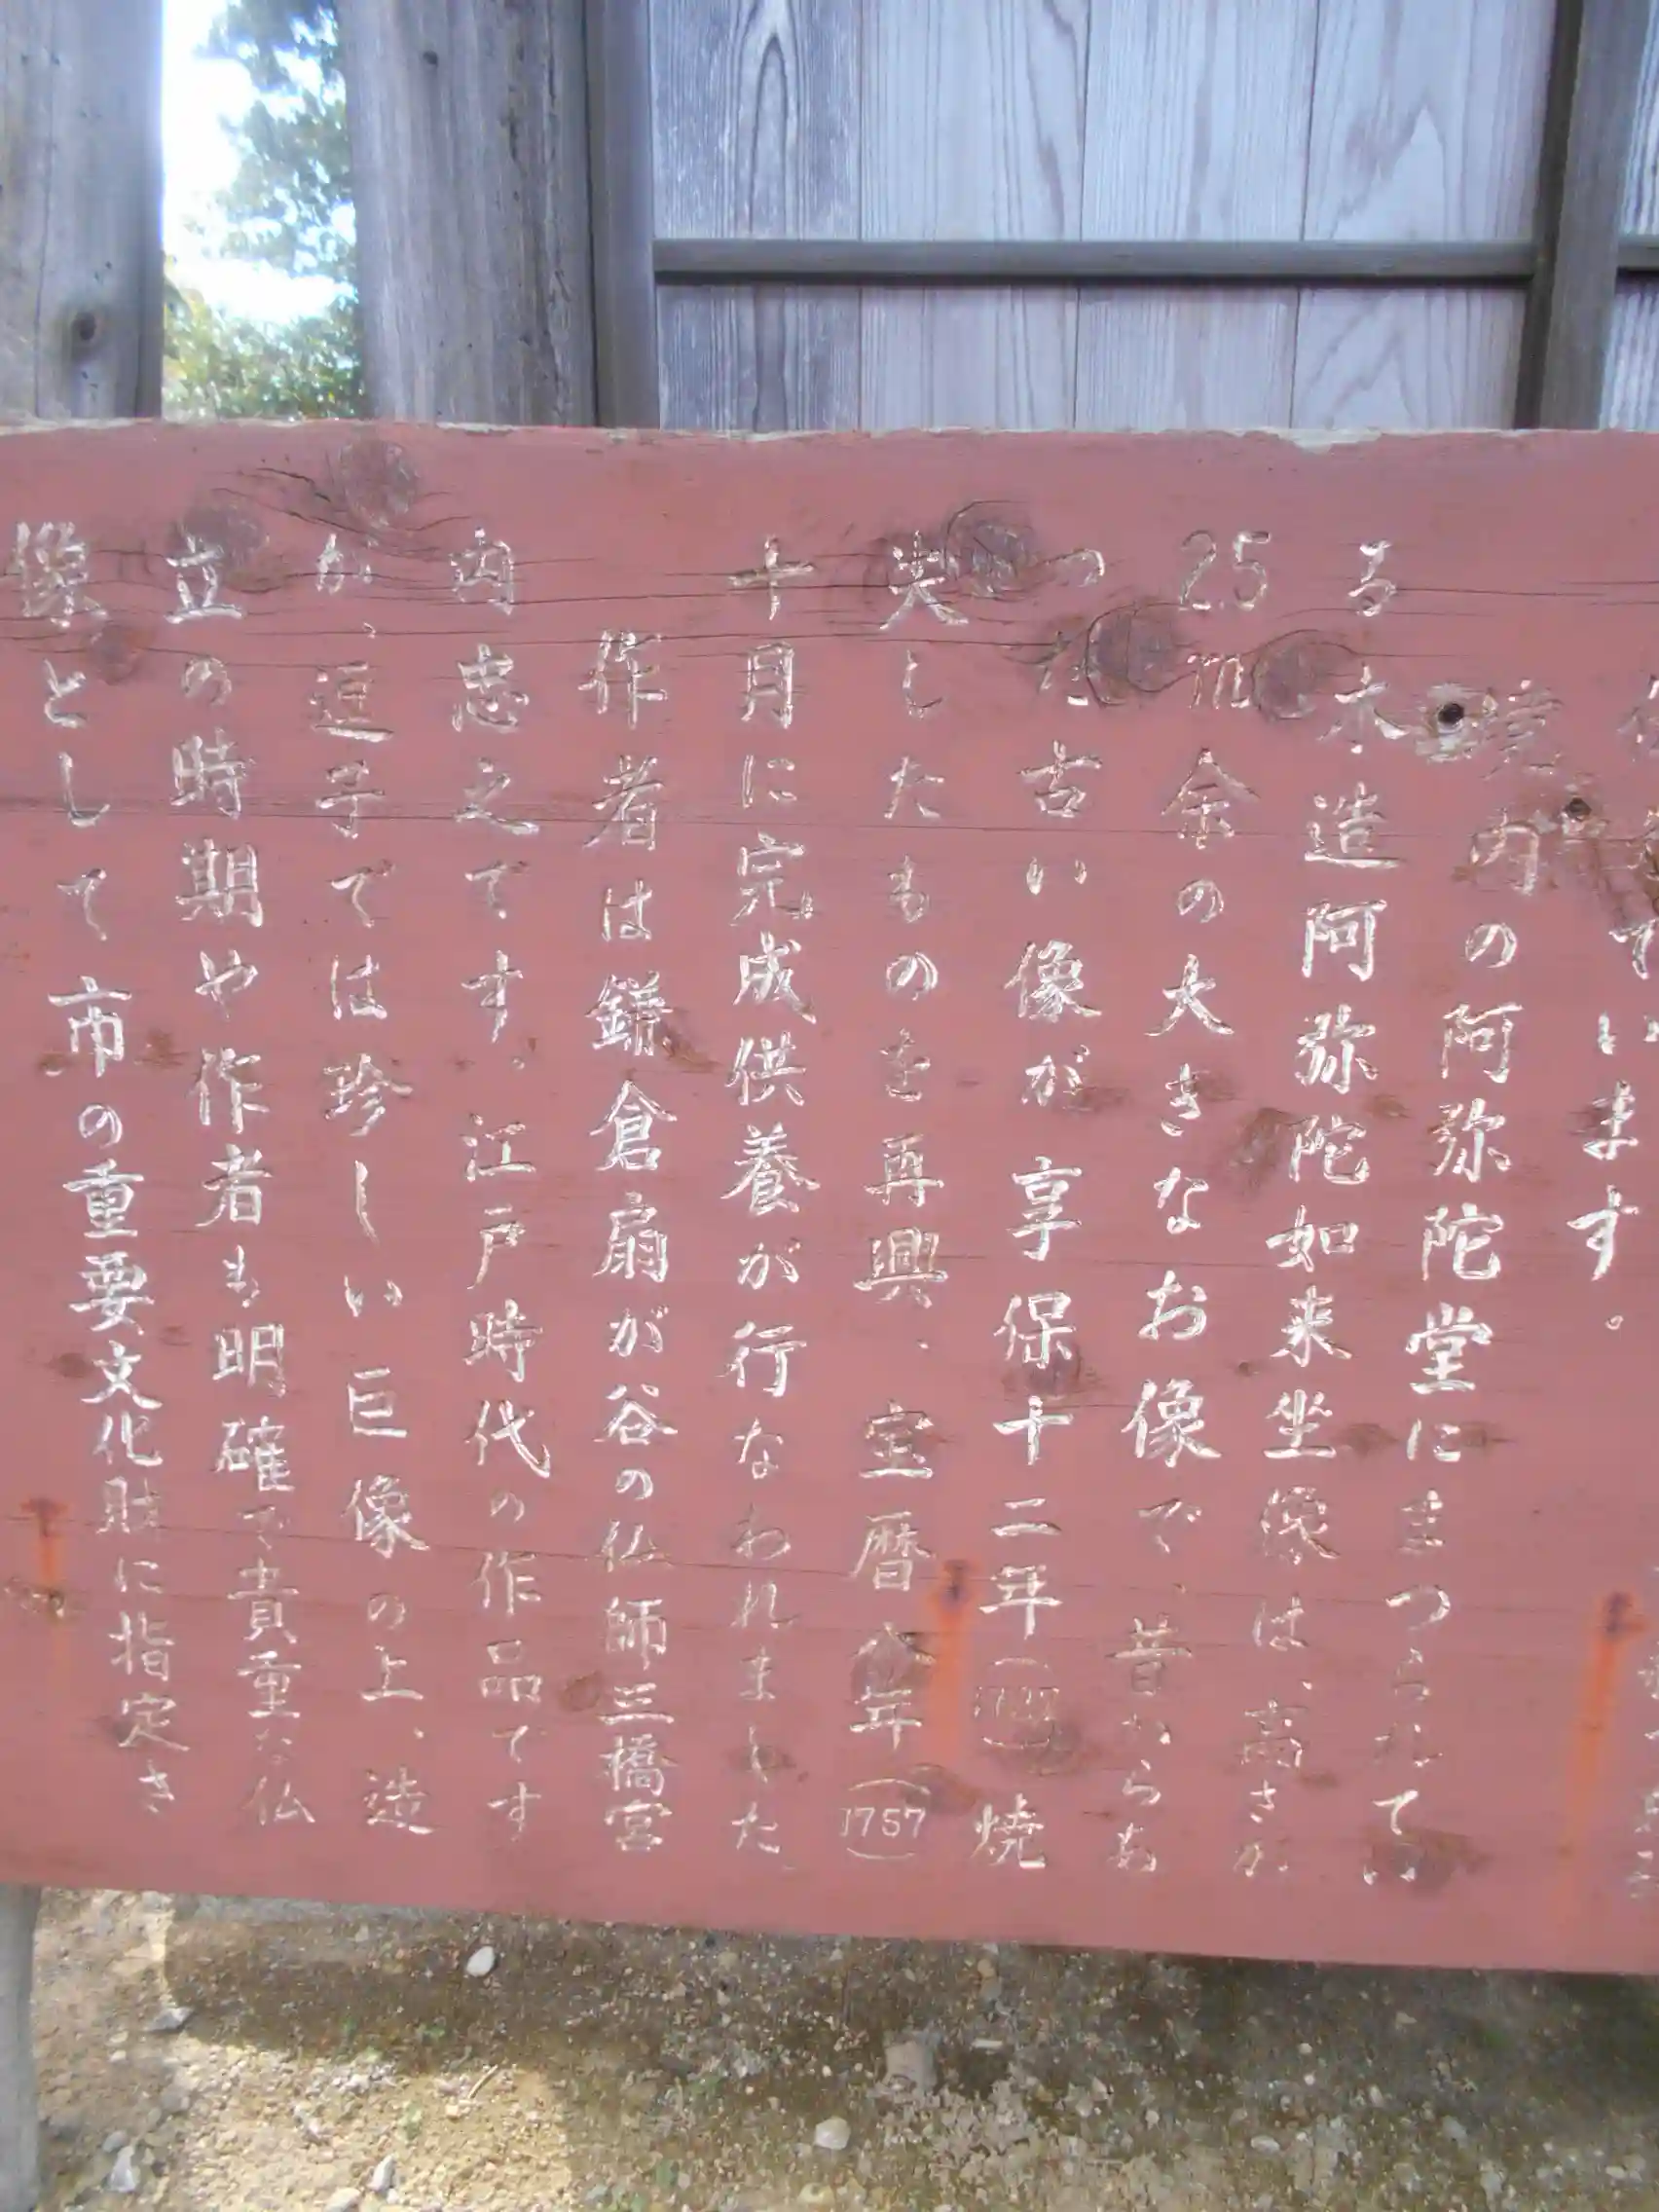 ています。
境内の阿弥陀堂にまつられてい
る木造阿弥陀如来坐像は、高さが
2.5m余の大きなお像で、昔からあ
った古い像が享保十二年(1727)焼
失したものを再興、宝暦 年(1757)
十月に完成供養が行なわれました
作者は鎌倉扇が谷の仏師三橋宮
内忠之です。江戸時代の作品です
が、逗子では珍しい巨像の上、造
立の時期や作者も明確で貴重な仏
像として市の重要文化財に指定さ